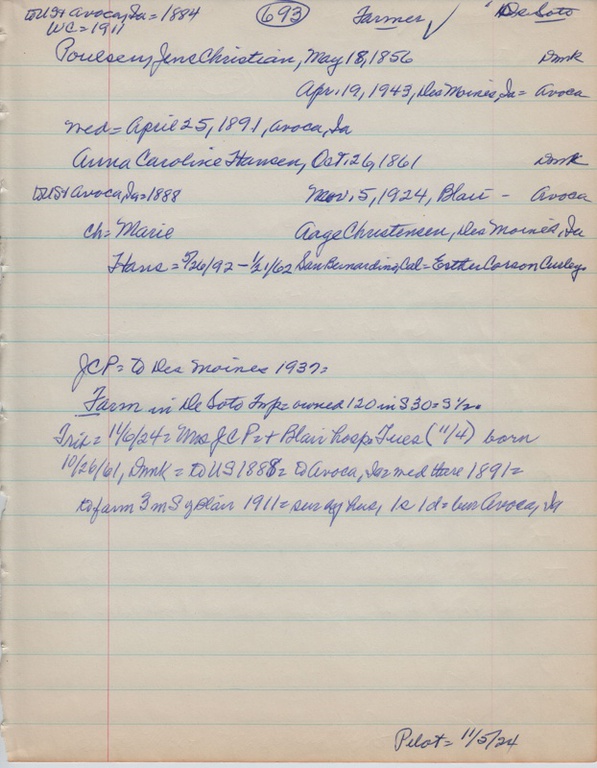 to US + Avoca, Ia = 1884 (693) Farmer ✓ De Soto
WC = 1911
Poulsen, Jens Christian, May 18, 1856 Dmk
Apr. 19, 1943, Des Moines, Ia = Avoca
med = April 25, 1891, Avoca, Ia
Anna Caroline Hansen, Oct. 26, 1861 Dmk
to US + Avoca, Ia = 1888 Nov. 5, 1924, Blair - Avoca
ch = Marie Aage Christensen, Des Moines, Ia
Hans = 5/26/92 - 1/21/62 San Bernardino, Cal = Esther Corson Curley
JCP = to Des Moines 1937 =
Farm in De Soto Twp = owned 120 in S 30 = S 1/2
Trib = 11/6/24 = Mrs JCP = + Blair hosp Tues (11/4) born
10/26/61, Dmk = to US 1888 = to Avoca, Ia = med there 1891 =
to farm 3 m S of Blair 1911 = sur by hus, 1s 1d = bur Avoca, Ia
Pilot = 11/5/24